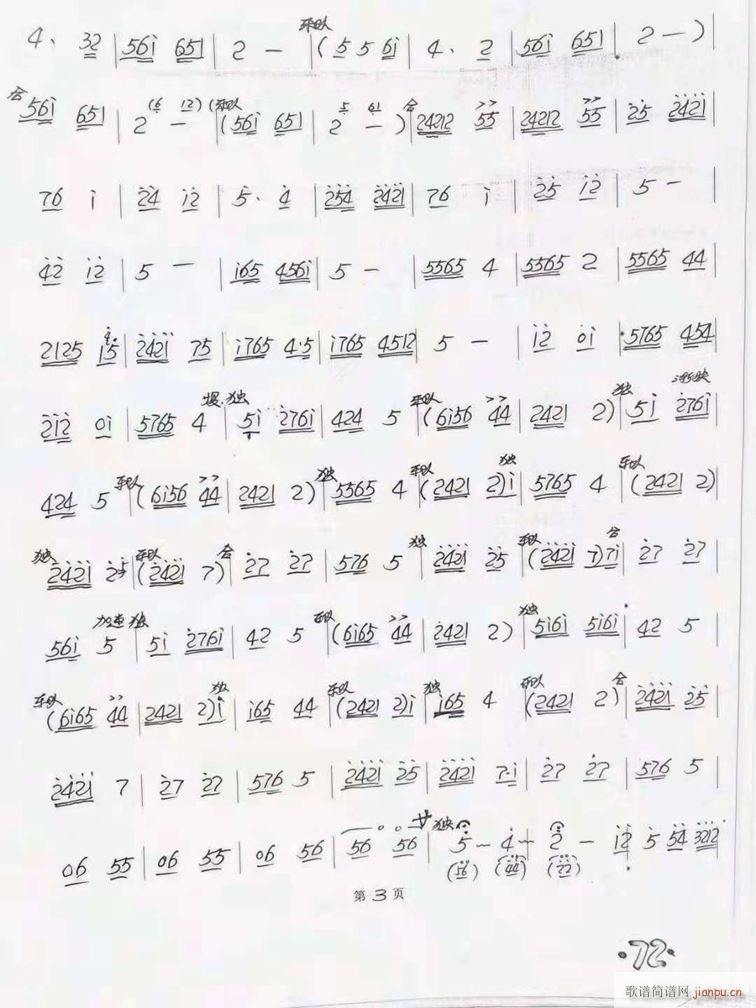 4. 32 | 56i 651 | 2 — | 乐队 (5 5 6i | 4. 2 | 56i 651 | 2 —) |
合 56i 651 | 2 — (6 12) | (乐队 (56i 651 | 2 — ) 5 61 | 合 24212 55 | 24212 55 | 25 2421 |
76 i | 24 12 | 5. 4 | 254 2421 | 76 i | 25 12 | 5 — |
42 12 | 5 — | i65 456i | 5 — | 5565 4 | 5565 2 | 5565 44 |
2125 15 | 2421 75 | i765 4·5 | i765 4512 | 5 — | 12 01 | 5765 454 |
212 01 | 5765 4 | 慢 独 5i 276i | 424 5 | 乐队 (6i56 44 | 2421 2) | 独 5i 渐快 276i |
424 5 | 乐队 (6i56 44 | 2421 2) | 独 5565 4 | 乐队 (2421 2) 独 i | 5765 4 | 乐队 (2421 2) |
独 2421 25 | 乐队 (2421 7) | 合 27 27 | 576 5 | 独 2421 25 | 乐队 (2421 7) 合 7i | 27 27 |
56i 5 | 加速 独 5i 276i | 42 5 | 乐队 (6i65 44 | 2421 2) | 独 5i6i 5i6i | 42 5 |
乐队 (6i65 44 | 2421 2) 独 i | i65 44 | 乐队 (2421 2) i | 独 i65 4 | 乐队 (2421 2) | 合 2421 25 |
2421 7 | 27 27 | 576 5 | 2421 25 | 2421 7·i | 27 27 | 576 5 |
06 55 | 06 55 | 06 56 | 56 56 | 艹 独 5 ~ 4 ~ 2 — 12 5 54 3212 |
(56) (44) (22)
第 3 页
·72·
歌谱简谱网
jianpu.cn